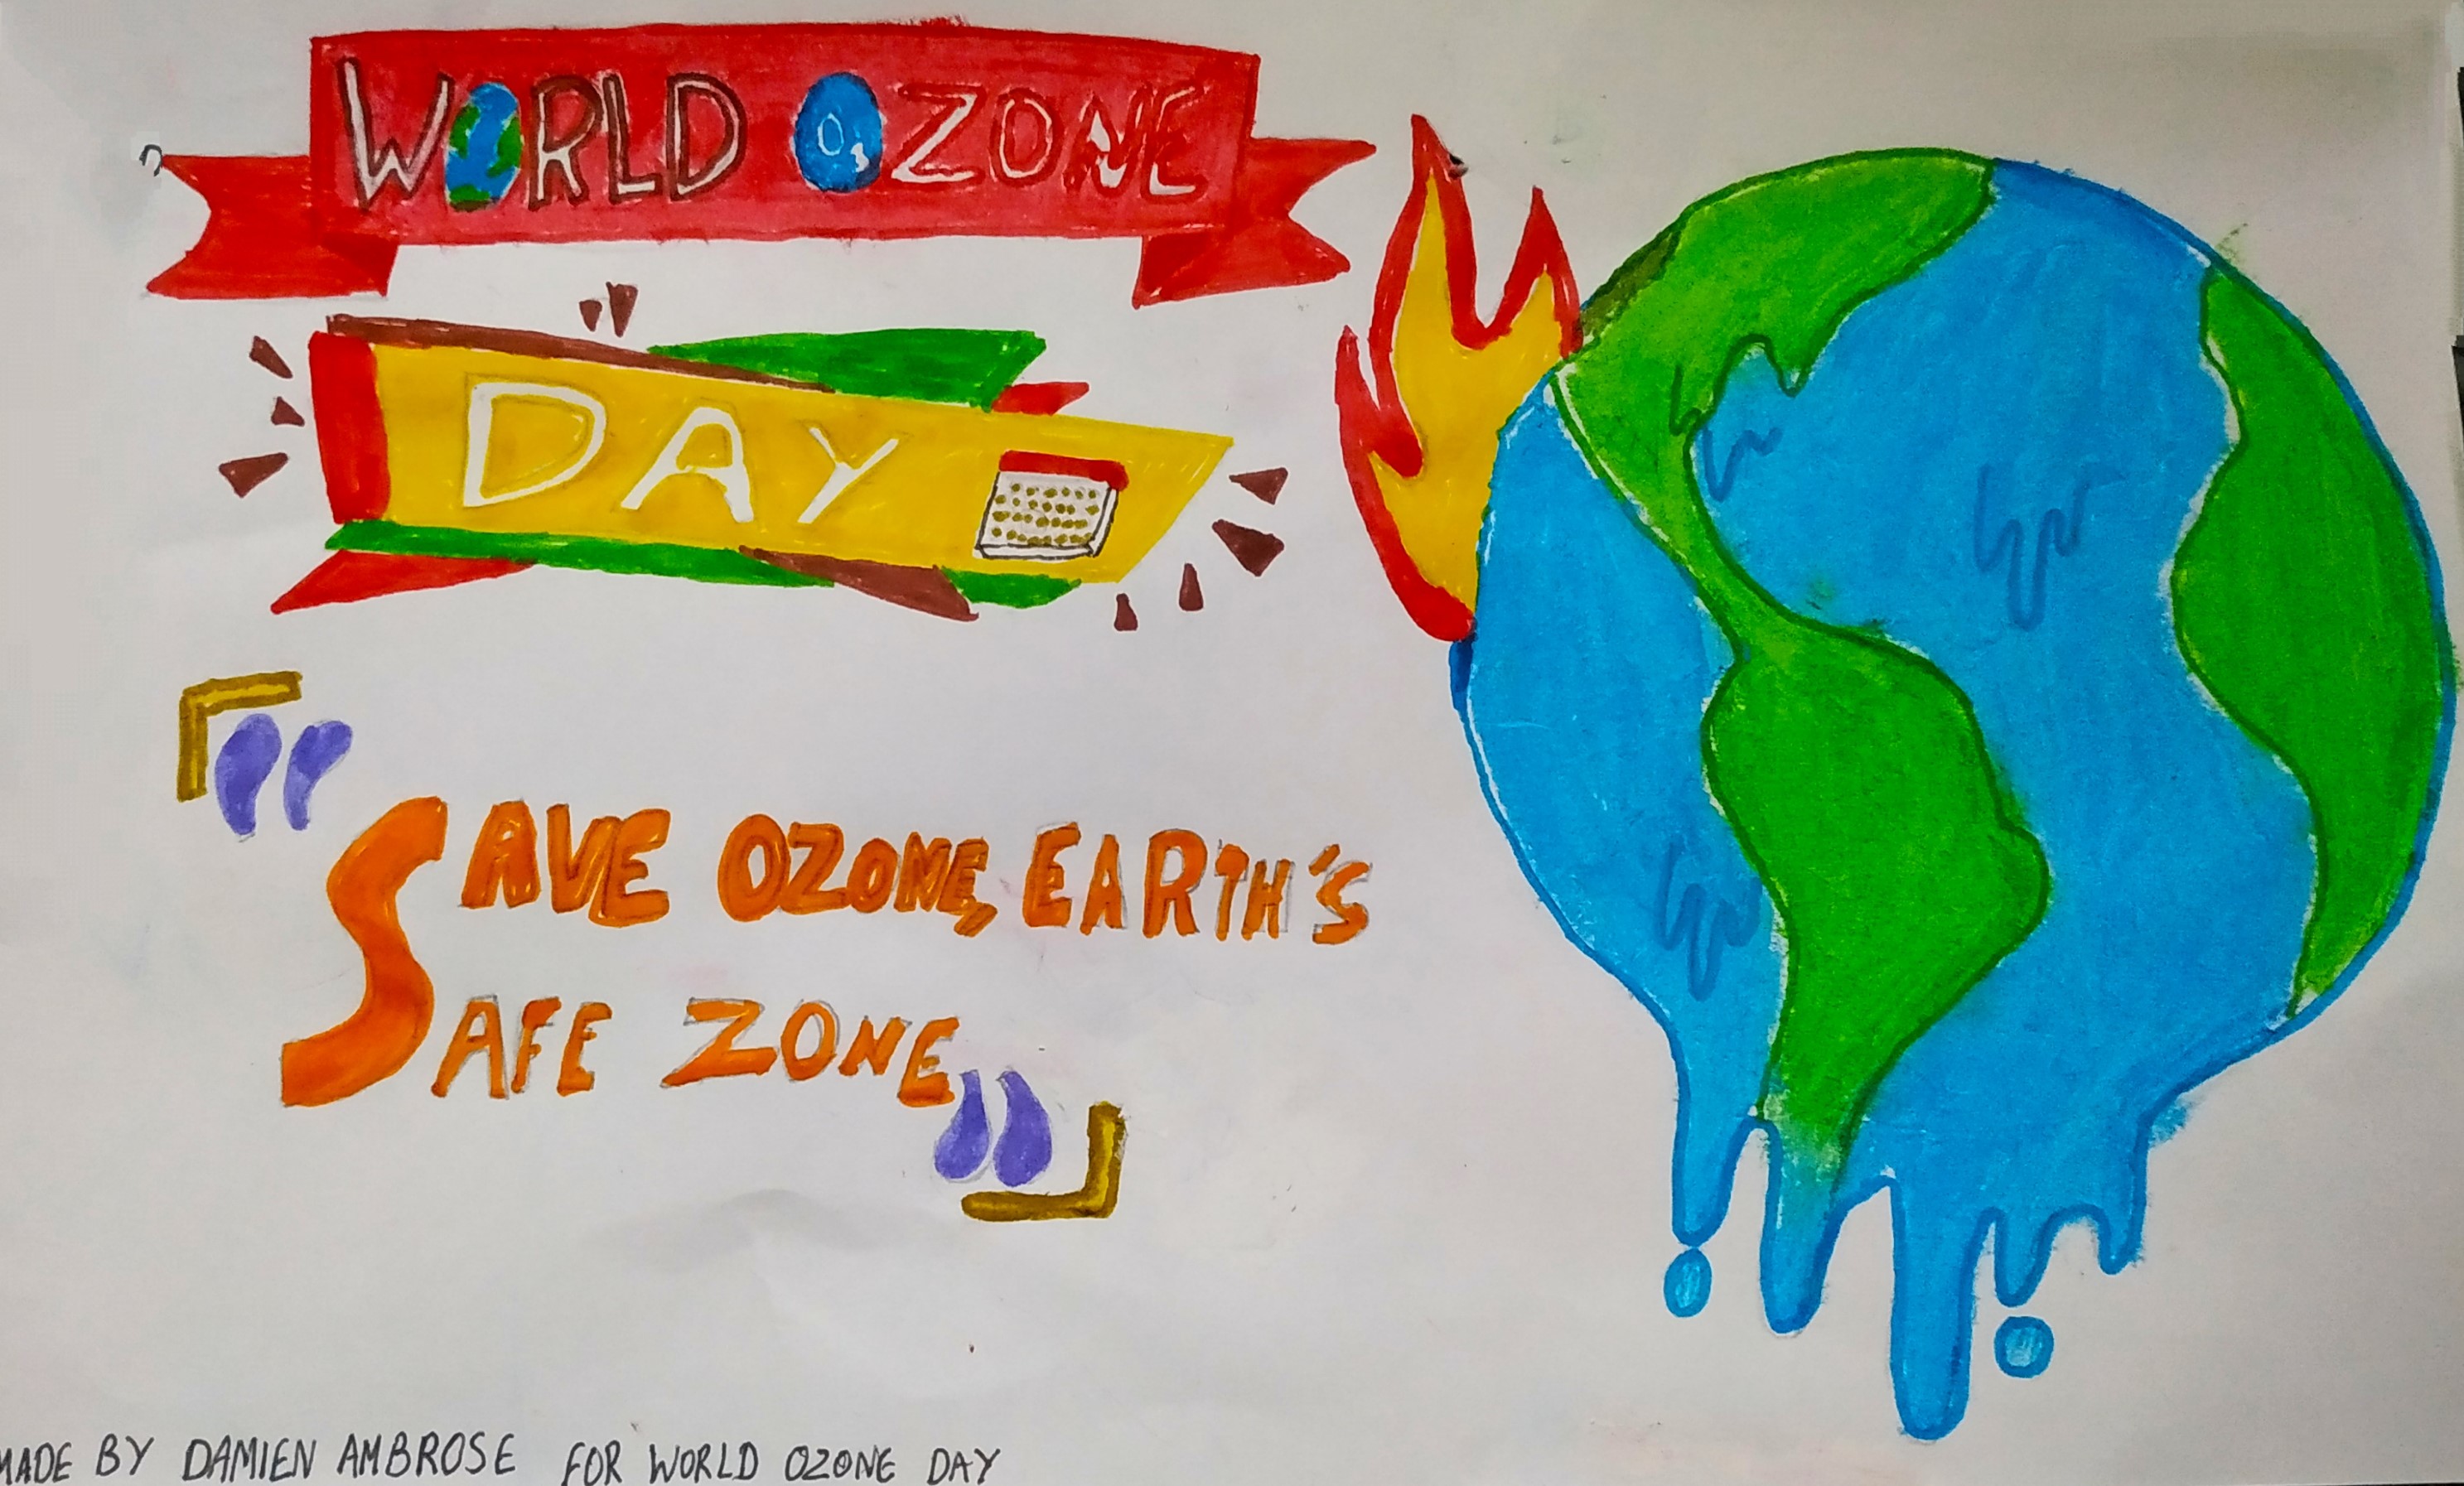 WORLD OZONE
O3
DAY
"SAVE OZONE, EARTH'S
SAFE ZONE"
MADE BY DAMIEN AMBROSE FOR WORLD OZONE DAY